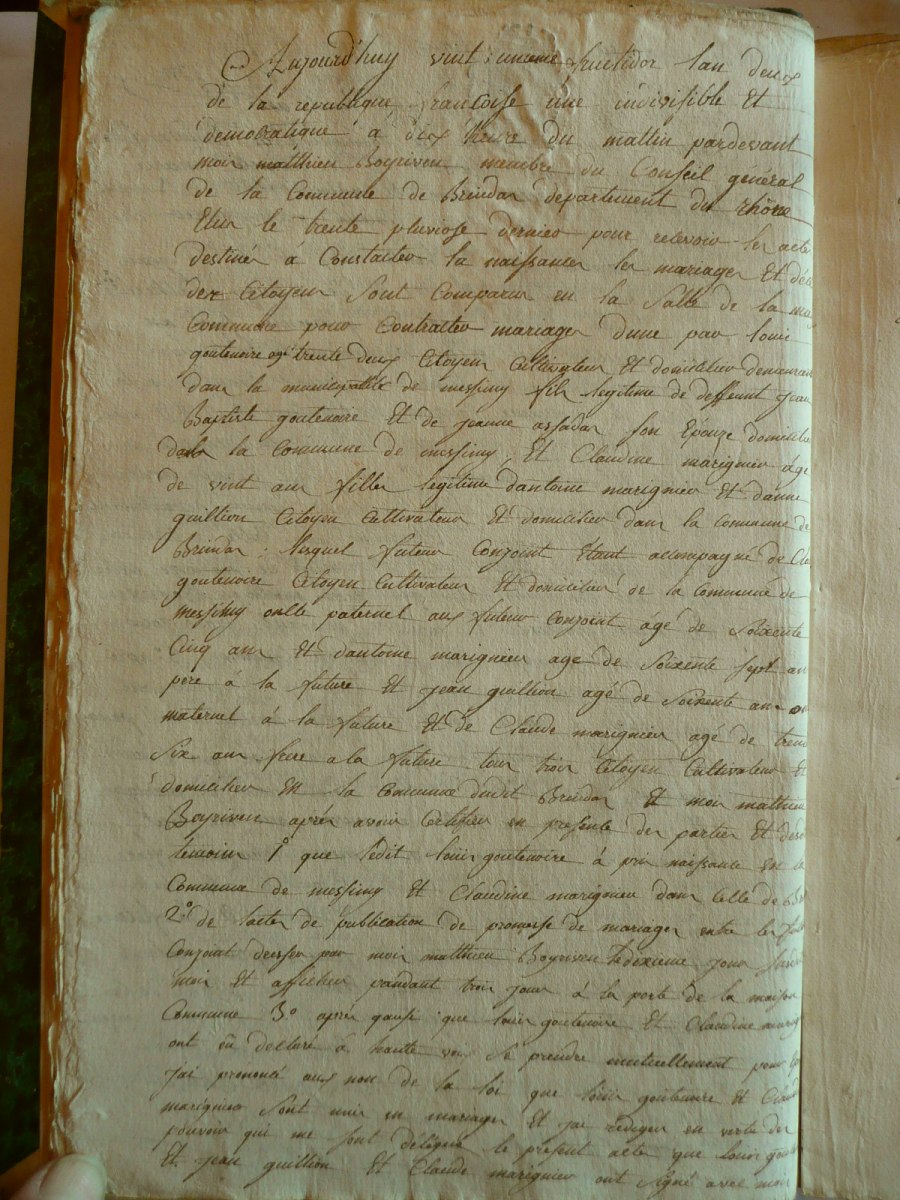 Aujourd'huy vint unieme fructidor lan deux
de la republique francoise une indivisible Et
democratique à dix heure du mattin pardevant
moi matthieu Boyriven membre du Conseil général
de la Commune de Brindas departement du rhône
Elur le trente pluviose dernier pour recevoir les acte
destinés à Constater la naissances les mariages Et déc
des Citoyens Sont Comparus en la Salle de la mai
Commune pour Contracter mariages dune par louis
goutenoire agé trente deux Citoyen Cultivateur Et domicilier demeurant
dans la municipalité de messimy fils legitime de deffeunt jean
Baptiste goutenoire Et de jeanne assadas son Epouze domicilie
dans la Commune de messimy, Et Claudine marignier agé
de vint ans filles legitime dantoine marignier Et danne
guillion Citoyen Cultivateur Et domicilier dans la Commune de
Brindas : lesquel futeur Conjoint Etant acompagné de
goutenoire Citoyen Cultivateur Et domicilier de la Commune de
messimy oncle paternel aux futeur Conjoint agé de Soixente
Cinq ans Et dantoine marignier age de Soixente Sept an
pere à la future Et jean guillion agé de Soixente ans on
maternel à la future Et de Claude marignier agé de trente
Six ans frere a la future tous trois Citoyen Cultivateur Et
domicilier En la Commune dudit Brindas Et moi matthieu
Boyriven aprés avoir en presente des parties Et des
temoins 1° que ledit louis goutenoire à pris naissance en la
Commune de messimy Et Claudine marignier dans Celle de
2° de lactes de publication de promesse de mariages entre les fut
Conjoint dresser par moi matthieu Boyriven le dixieme jour
moi Et afficher pandant trois jours à la porte de la maison
Commune 3° apres que louis goutenoire Et Claudine marig
ont declaré à haute voix se prendre mutuellement pour
jai prononcé aux nom de la loi que louis goutenoire Et Claud
marignier sont unis en mariages Et jai rediger en vertu des
pouvoirs qui me sont délégué le present actes que louis gout
Et jean guillion Et Claude marignier ont signé avec moi